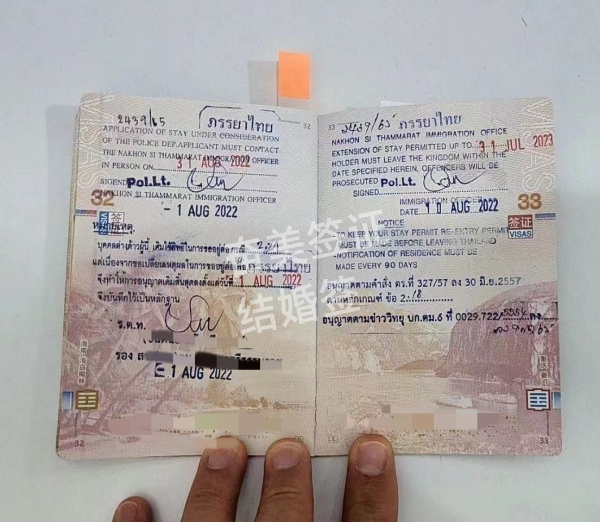 2439/65
ภรรยาไทย
APPLICATION OF STAY UNDER CONSIDERATION
OF THE POLICE DEP. APPLICANT MUST CONTACT
THE NAKHON SI THAMMARAT IMMIGRATION OFFICER
IN PERSON ON 31 AUG 2022
SIGNED Pol.Lt.
NAKHON SI THAMMARAT IMMIGRATION OFFICER
- 1 AUG 2022
32
签证
หมายเหตุ
บุคคลต่างด้าวผู้นี้ เดิมใช้สิทธิในการขออยู่ต่อกรณี
แต่เนื่องจากขอเปลี่ยนเหตุผลในการขออยู่ต่อเป็น ภรรยาไทย
จึงทำให้การอนุญาตเดิมสิ้นสุดลงตั้งแต่วันที่ 1 AUG 2022
จึงบันทึกไว้เป็นหลักฐาน
ร.ต.ท.
รอง ส
- 1 AUG 2022
32
32
33
2439/65 ภรรยาไทย
NAKHON SI THAMMARAT IMMIGRATION OFFICE
EXTENSION OF STAY PERMITTED UP TO 31 JUL 2023
HOLDER MUST LEAVE THE KINGDOM WITHIN THE
DATE SPECIFIED HEREIN, OFFENDERS WILL BE
PROSECUTED Pol.Lt.
SIGNED
IMMIGRATION OFFICER
DATE 10 AUG 2022
33
签证
VISAS
NOTICE
TO KEEP YOUR STAY PERMIT RE-ENTRY PERMIT
MUST BE MADE BEFORE LEAVING THAILAND
NOTIFICATION OF RESIDENCE MUST BE
MADE EVERY 90 DAYS
อนุญาตตามคำสั่ง ตร.ที่ 327/57 ลง 30 มิ.ย.2557
ตามหลักเกณฑ์ ข้อ 2.18
อนุญาตตามข่าววิทยุ บก.ตม.6 ที่ 0029.722/ ลง
33
签证
结婚